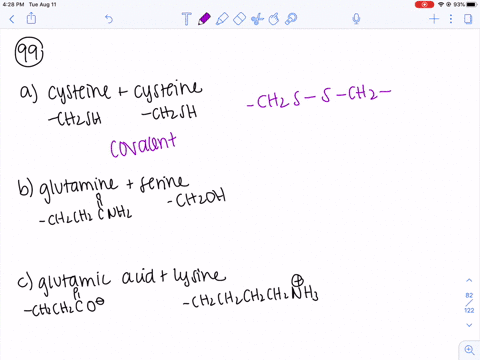 4:28 PM Tue Aug 11
93%
99
a) cysteine + cysteine
-CH2SH -CH2SH
-CH2S-S-CH2-
covalent
b) glutamine + serine
O
-CH2CH2CNH2 -CH2OH
c) glutamic acid + lysine
O
-CH2CH2CO⊖ -CH2CH2CH2CH2NH3
⊕
82
/
122